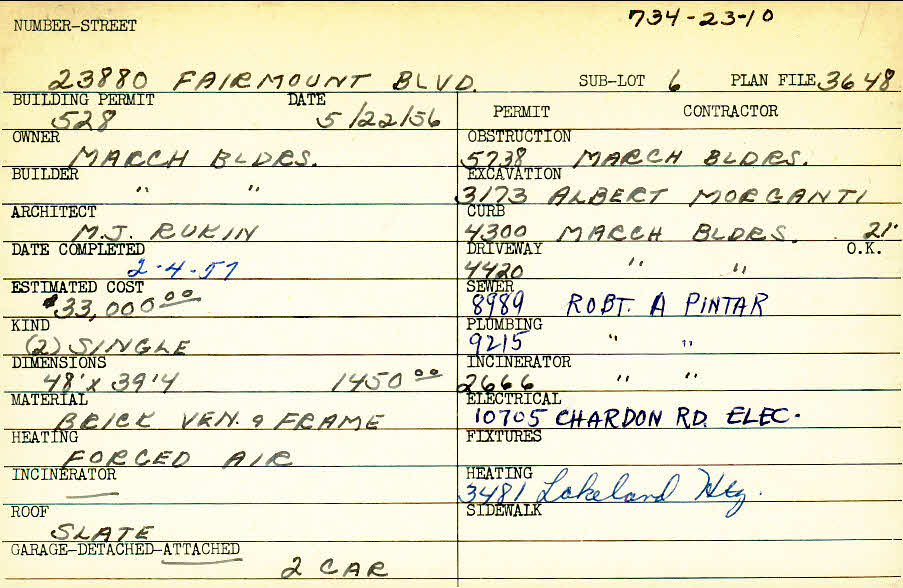 734-23-10
NUMBER-STREET
23880 FAIRMOUNT BLVD. SUB-LOT 6 PLAN FILE 3648
BUILDING PERMIT DATE
528 5/22/56
OWNER
MARCH BLDRS.
BUILDER
" "
ARCHITECT
M.J. RUKIN
DATE COMPLETED
2-4-57
ESTIMATED COST
$33,000 00
KIND
(2) SINGLE
DIMENSIONS
48' x 39'4 1450 00
MATERIAL
BRICK VEN. & FRAME
HEATING
FORCED AIR
INCINERATOR
—
ROOF
SLATE
GARAGE-DETACHED-ATTACHED
2 CAR
PERMIT CONTRACTOR
OBSTRUCTION
5738 MARCH BLDRS.
EXCAVATION
3173 ALBERT MORGANTI
CURB
4300 MARCH BLDRS. 21'
DRIVEWAY O.K.
4420 " "
SEWER
8989 ROBT. A PINTAR
PLUMBING
9215 " "
INCINERATOR
2666 " "
ELECTRICAL
10705 CHARDON RD. ELEC.
FIXTURES
HEATING
3481 Lakeland Htg.
SIDEWALK